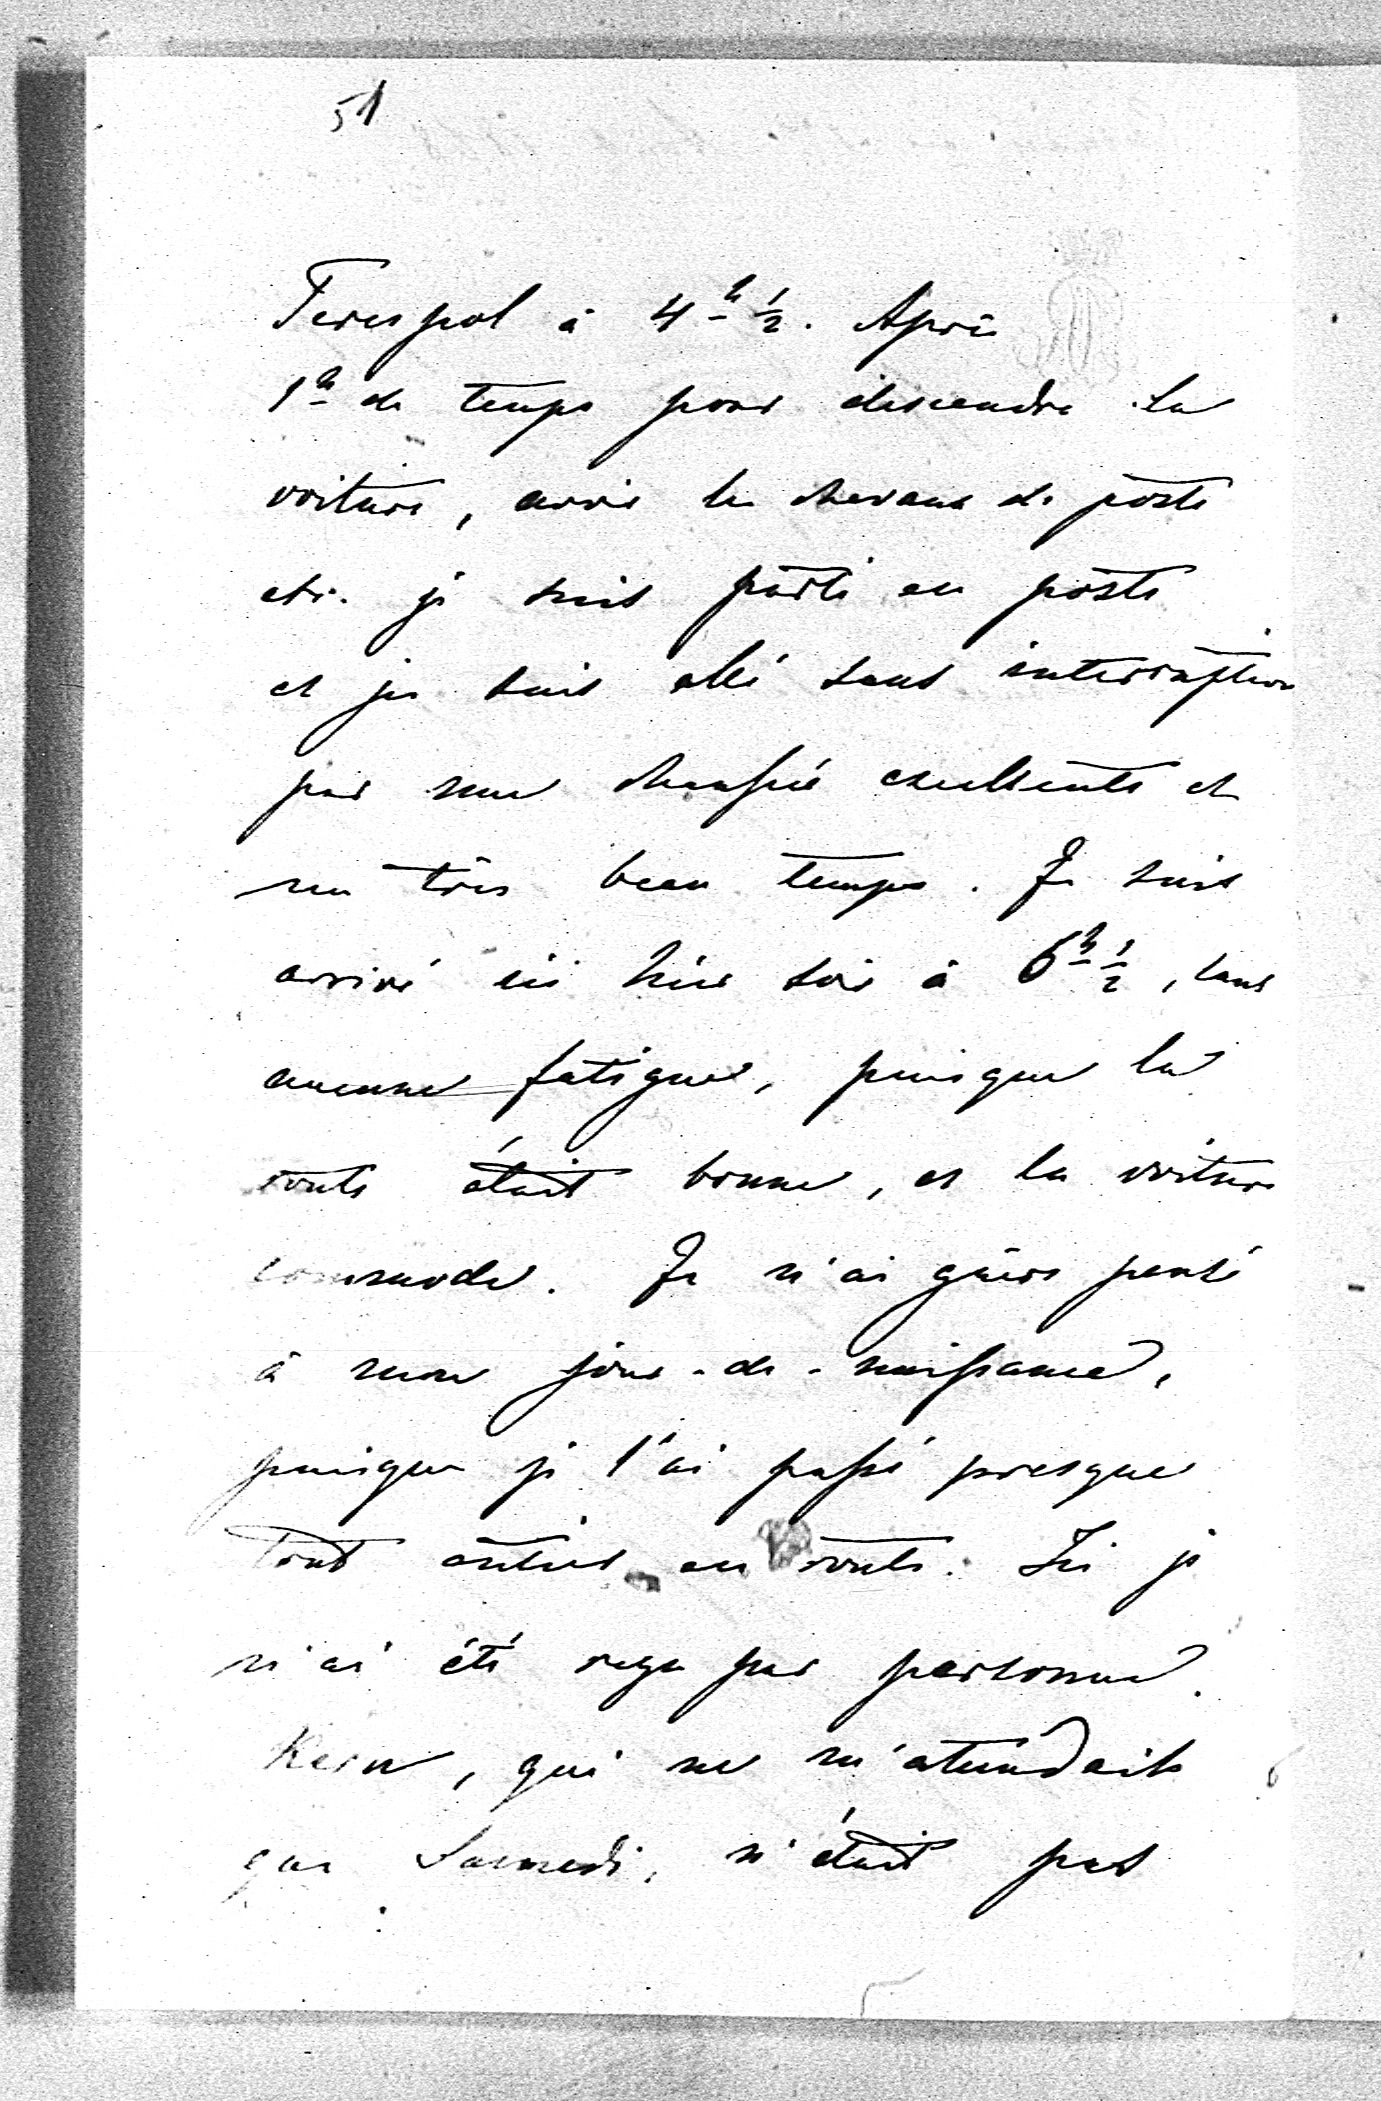 51
Terespol à 4 h ½. Après
1 h de temps pour descendre la
voiture, avoir les chevaux de poste
etc. je suis parti en poste
et je suis allé sans interruption
par une chaussée excellente et
un très beau temps. Je suis
arrivé ici hier soir à 6 h ½, sans
aucune fatigue, puisque la
route était bonne, et la voiture
commode. Je n'ai guère pensé
à mon jour-de-naissance,
puisque je l'ai passé presque
tout entier en route. Ici je
n'ai été reçu par personne.
Kern, qui ne m'attendait
que Samedi, n'était pas